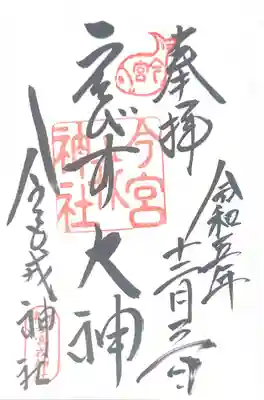 奉拝
令和五年
十二月二日
ゑびす大神
今宮戎神社
今宮
今宮戎神社